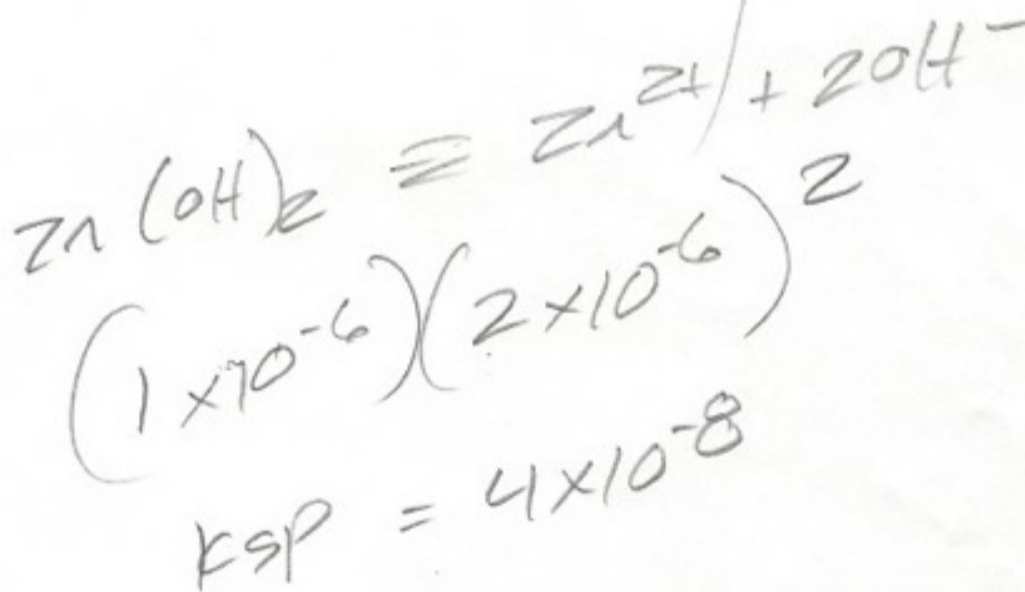 Zn(OH)₂ ⇌ Zn²⁺ + 2OH⁻
(1 × 10⁻⁶)(2 × 10⁻⁶)²
Ksp = 4 × 10⁻⁸